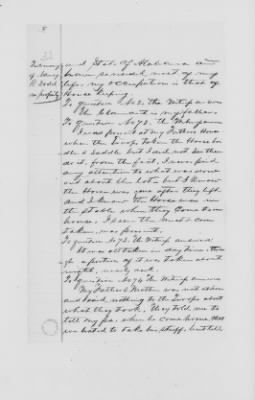 8
22
Testimony
of Mary
E. Dodd
as property
and State of Alabama
have resided most of my
life, my occupation is that of
House Keeping.
To question No 2, the Witness answers
The Claimant is my father.
To question No 72. the Witness answers
I was present at my Fathers House
when the troops taken the Horse bridle
& saddle but I did not see them
do it, from the fact, I never paid
any attention to what was done
out about the lot but I know
the Horse was gone after they left
and I know the Horse was in
the stable when they come to our
house, I seen the meat & corn
taken, was present.
To question No 73. the Witness answers
It was all taken in day time, though
a portion of it was taken about
night, nearly dark.
To question No 74 the Witness answers
My Father & Mother was not at home
and I said nothing to the troops about
what they took, they told me to
tell my pa, when he come home, that
we hated to take his stuff, but tell